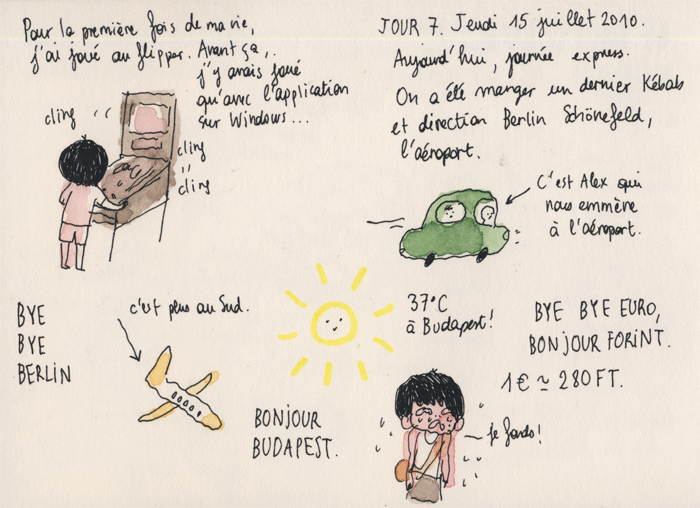 Pour la première fois de ma vie,
j'ai joué au flipper. Avant ça,
j'y avais joué
qu'avec l'application
sur Windows...
cling
cling
cling
JOUR 7. Jeudi 15 juillet 2010.
Aujourd'hui, journée express.
On a été manger un dernier Kébab
et direction Berlin Schönefeld,
l'aéroport.
C'est Alex qui
nous emmène
à l'aéroport.
BYE
BYE
BERLIN
c'est plus au Sud.
BONJOUR
BUDAPEST.
37°C
à Budapest!
BYE BYE EURO,
BONJOUR FORINT.
1€ ≃ 280FT.
je fonds!